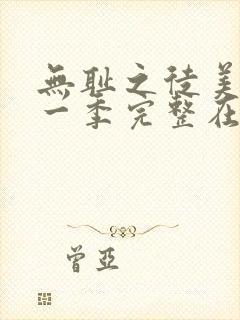 無耻之徒美
一季完整在
曾亞